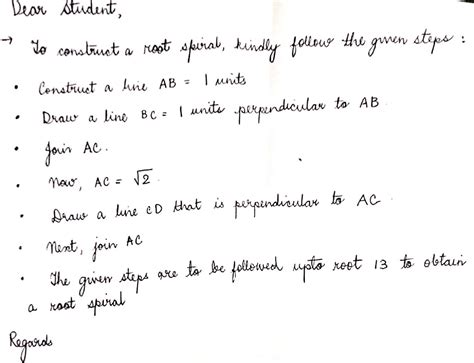 Dear Student,
→ To construct a root spiral, kindly follow the given steps :
• Construct a line AB = 1 units
• Draw a line BC = 1 units perpendicular to AB
• Join AC.
• Now, AC = √2.
• Draw a line CD that is perpendicular to AC.
• Next, join AC
• The given steps are to be followed upto root 13 to obtain
a root spiral
Regards